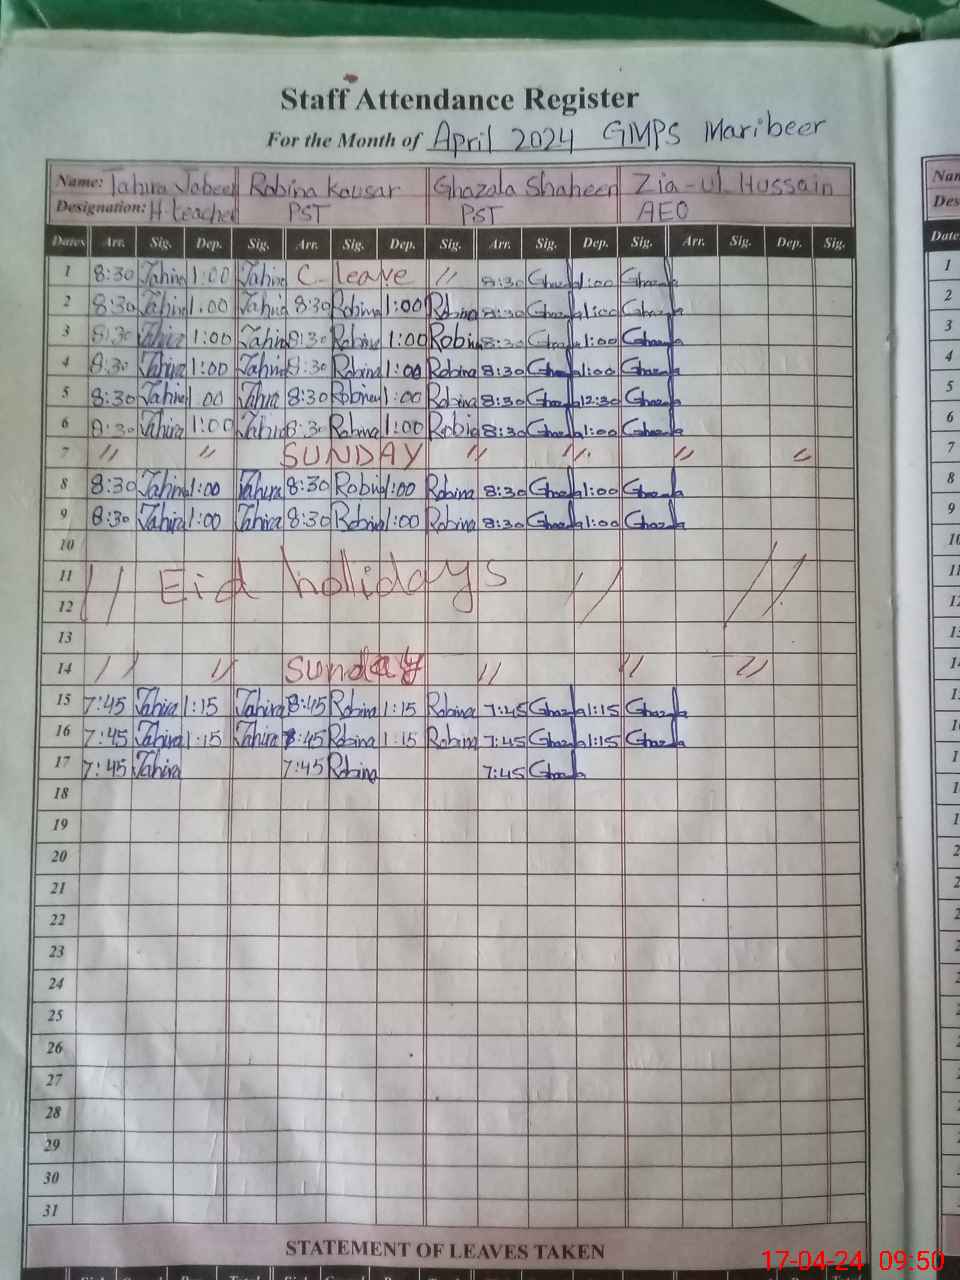 Staff Attendance Register
For the Month of April 2024 GMPS Maribeer
Name: Tahira Jabeen Robina Kousar Ghazala Shaheen Zia-ul-Hussain
Designation: H-teacher PST PST AEO
Dates Arr. Sig. Dep. Sig. Arr. Sig. Dep. Sig. Arr. Sig. Dep. Sig. Arr. Sig. Dep. Sig.
1 8:30 Tahira 1:00 Tahira C-leave " 8:30 Ghazala 1:00 Ghazala
2 8:30 Tahira 1:00 Tahira 8:30 Robina 1:00 Robina 8:30 Ghazala 1:00 Ghazala
3 8:30 Tahira 1:00 Tahira 8:30 Robina 1:00 Robina 8:30 Ghazala 1:00 Ghazala
4 8:30 Tahira 1:00 Tahira 8:30 Robina 1:00 Robina 8:30 Ghazala 1:00 Ghazala
5 8:30 Tahira 1:00 Tahira 8:30 Robina 1:00 Robina 8:30 Ghazala 12:30 Ghazala
6 8:30 Tahira 1:00 Tahira 8:30 Robina 1:00 Robina 8:30 Ghazala 1:00 Ghazala
7 " " SUNDAY " " " "
8 8:30 Tahira 1:00 Tahira 8:30 Robina 1:00 Robina 8:30 Ghazala 1:00 Ghazala
9 8:30 Tahira 1:00 Tahira 8:30 Robina 1:00 Robina 8:30 Ghazala 1:00 Ghazala
10
11 " Eid holidays " "
12
13
14 " " Sunday " " "
15 7:45 Tahira 1:15 Tahira 8:45 Robina 1:15 Robina 7:45 Ghazala 1:15 Ghazala
16 7:45 Tahira 1:15 Tahira 8:45 Robina 1:15 Robina 7:45 Ghazala 1:15 Ghazala
17 7:45 Tahira 7:45 Robina 7:45 Ghazala
18
19
20
21
22
23
24
25
26
27
28
29
30
31
STATEMENT OF LEAVES TAKEN
17-04-24 09:50